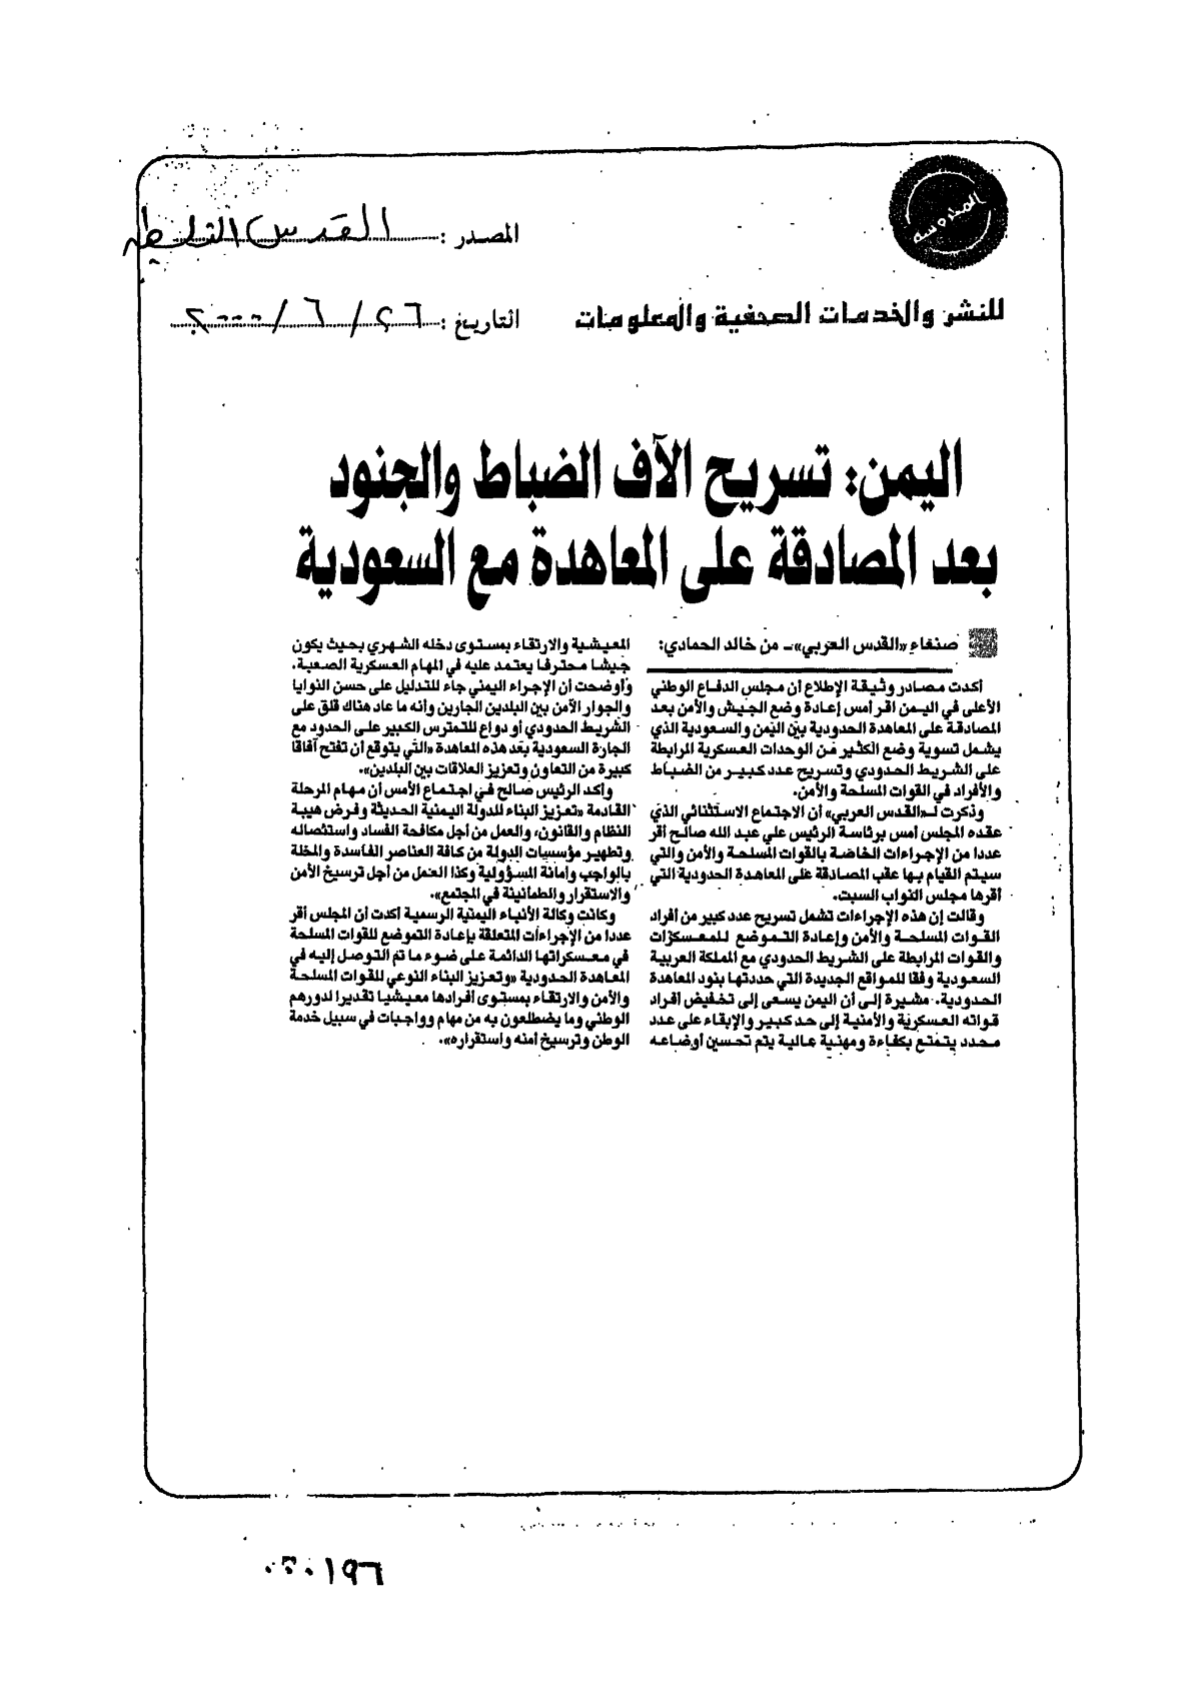 المحروسة
المصدر : القدس
للنشر والخدمات الصحفية والمعلومات
التاريخ : ٢٦ / ٦ / ٢٠٠٠
اليمن: تسريح الآف الضباط والجنود
بعد المصادقة على المعاهدة مع السعودية
صنعاء «القدس العربي»ـ من خالد الحمادي:
أكدت مصادر وثيقة الإطلاع أن مجلس الدفاع الوطني
الأعلى في اليمن اقر أمس إعادة وضع الجيش والأمن بعد
المصادقة على المعاهدة الحدودية بين اليمن والسعودية الذي
يشمل تسوية وضع الكثير من الوحدات العسكرية المرابطة
على الشريط الحدودي وتسريح عدد كبير من الضباط
والأفراد في القوات المسلحة والأمن.
وذكرت لـ«القدس العربي» أن الاجتماع الاستثنائي الذي
عقده المجلس أمس برئاسة الرئيس علي عبد الله صالح أقر
عددا من الإجراءات الخاصة بالقوات المسلحة والأمن والتي
سيتم القيام بها عقب المصادقة على المعاهدة الحدودية التي
أقرها مجلس النواب السبت.
وقالت إن هذه الإجراءات تشمل تسريح عدد كبير من أفراد
القوات المسلحة والأمن وإعادة التموضع للمعسكرات
والقوات المرابطة على الشريط الحدودي مع المملكة العربية
السعودية وفقا للمواقع الجديدة التي حددتها بنود المعاهدة
الحدودية، مشيرة إلى أن اليمن يسعى إلى تخفيض أفراد
قواته العسكرية والأمنية إلى حد كبير والإبقاء على عدد
محدد يتمتع بكفاءة ومهنية عالية يتم تحسين أوضاعه
المعيشية والارتقاء بمستوى دخله الشهري بحيث يكون
جيشا محترفا يعتمد عليه في المهام العسكرية الصعبة.
وأوضحت أن الإجراء اليمني جاء للتدليل على حسن النوايا
والجوار الأمن بين البلدين الجارين وأنه ما عاد هناك قلق على
الشريط الحدودي أو دواع للتمترس الكبير على الحدود مع
الجارة السعودية بعد هذه المعاهدة «التي يتوقع أن تفتح آفاقا
كبيرة من التعاون وتعزيز العلاقات بين البلدين».
وأكد الرئيس صالح في اجتماع الأمس أن مهام المرحلة
القادمة «تعزيز البناء للدولة اليمنية الحديثة وفرض هيبة
النظام والقانون، والعمل من أجل مكافحة الفساد واستئصاله
وتطهير مؤسسات الدولة من كافة العناصر الفاسدة والمخلة
بالواجب وأمانة المسؤولية وكذا العمل من أجل ترسيخ الأمن
والاستقرار والطمانينة في المجتمع».
وكانت وكالة الأنباء اليمنية الرسمية أكدت أن المجلس أقر
عددا من الإجراءات المتعلقة بإعادة التموضع للقوات المسلحة
في معسكراتها الدائمة على ضوء ما تم التوصل إليه في
المعاهدة الحدودية «وتعزيز البناء النوعي للقوات المسلحة
والأمن والارتقاء بمستوى أفرادها معيشيا تقديرا لدورهم
الوطني وما يضطلعون به من مهام وواجبات في سبيل خدمة
الوطن وترسيخ امنه واستقراره».